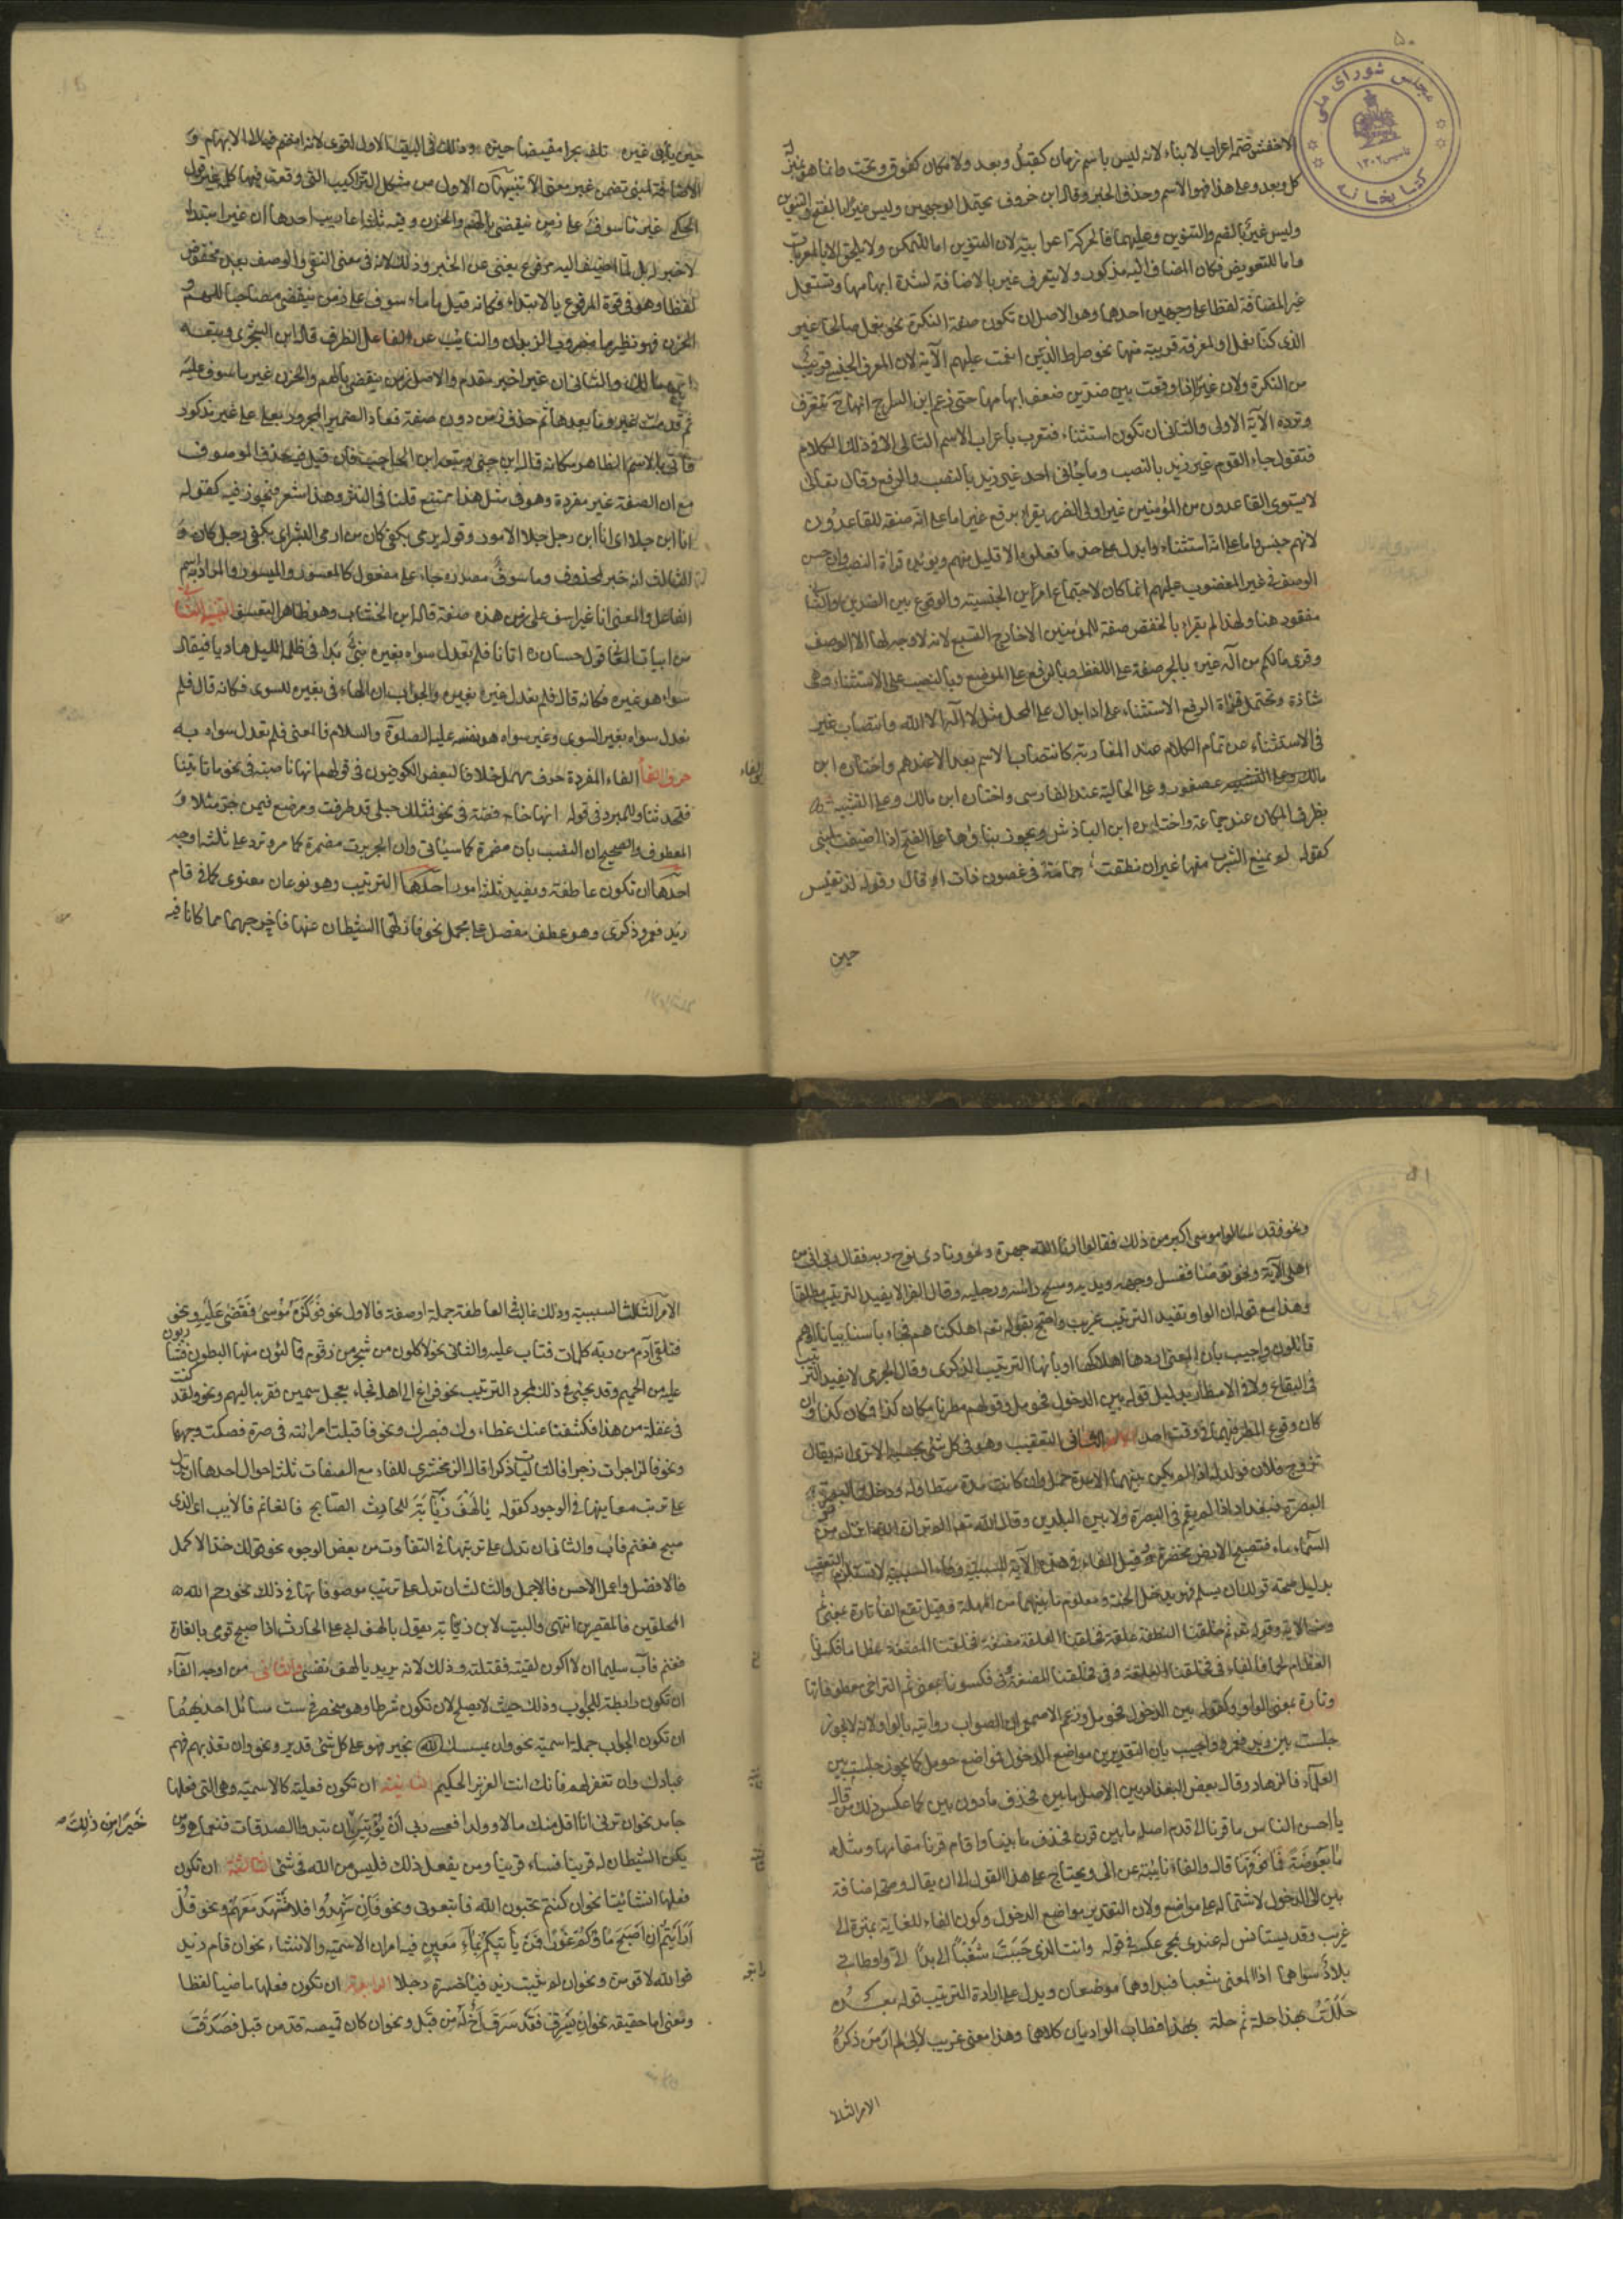 ۵۰
مجلس شورای ملی
تاسیس ۱۳۰۲
کتابخانه
الاخفش ضمة اعراب لا بناء لانه ليس باسم زمان كقبل وبعد ولا مكان كفوق وتحت وانما هو بمنزلة
كل وبعد وعلى هذا فهو الاسم وحذف الخبر وقال ابن خروف يحتمل الوجهين وليس غيرًا بالفتح والتنوين
وليس غيرٌ بالضم والتنوين وعليهما فالحركة اعرابية لان التنوين اما للتمكن ولا يلحق الا المعربات
واما للتعويض فكان المضاف اليه مذكور ولا يتعرف غير بالاضافة لشدة ابهامها وتستعمل
غير المضافة لفظا على وجهين احدهما وهو الاصل ان تكون صفة للنكرة نحو نعمل صالحا غير
الذى كنا نعمل او لمعرفة قريبة منها نحو صراط الذين انعمت عليهم الآية لان المعرف الجنسى قريب
من النكرة ولان غيرًا اذا وقعت بين ضدين ضعف ابهامها حتى زعم ابن السراج انها ح تتعرف
وترده الآية الاولى والثانى ان تكون استثناء فتعرب باعراب الاسم التالى الا فى ذلك الكلام
فتقول جاء القوم غير زيد بالنصب وما جاءنى احد غير زيد بالنصب والرفع وقال تعالى
لا يستوى القاعدون من المؤمنين غير اولى الضرر يقرا برفع غير اما على انه صفة للقاعدون
لانهم جنس واما على انه استثناء وابدل على حد ما فعلوه الا قليل منهم ويؤيده قراءة النصب وان حسن
الوصف فى غير المغضوب عليهم انما كان لاجتماع امرين الجنسية والوقوع بين الضدين والثانى
مفقود هنا ولهذا لم يقراء بالخفض صفة للمؤمنين الا خارج السبع لانه لا وجه لها الا الوصف
وقرى مالكم من اله غيره بالجر صفة على اللفظ وبالرفع على الموضع وبالنصب على الاستثناء وهى
شاذة وتحتمل قراءة الرفع الاستثناء على انه ابدال على المحل مثل لا اله الا الله وانتصاب غير
فى الاستثناء عن تمام الكلام عند المغاربة كانتصاب الاسم بعد الا عندهم واختاره ابن
عصفور وعلى الحالية عند الفارسى واختاره ابن مالك وعلى التشبيه
بظرف المكان عند جماعة واختاره ابن الباذش ويجوز بناؤها على الفتح اذا اضيفت لمبنى
كقوله لم يمنع الشرب منها غير ان نطقت حمامة فى غصون ذات اوقال وقوله لذ بقيس
حين
حين يأبى غيره تلفه بحرا مفيضا خيره وذلك فى البيت الاول اقوى لانه انضم فيه الى الابهام و
الاضافة لمبنى تضمن غير معنى الا تنبيهان الاول من مشكل التراكيب التى وقعت فيها كلمة غير قول
الحكمى غير مأسوف على زمن ينقضى بالهم والحزن وفيه ثلثة اعاريب احدها ان غير مبتدا
لا خبر له بل لما اضيف اليه مرفوع يغنى عن الخبر وذلك لانه فى معنى النفى والوصف بعده مخفوض
لفظا وهو فى قوة المرفوع بالابتداء فكانه قيل ما ماسوف على زمن ينقضى مصاحبا للهم و
الحزن فهو نظير ما مضروب الزيدان والنائب عن الفاعل الظرف قاله ابن الشجرى وتبعه
ابن مالك والثانى ان غير خبر مقدم والاصل زمن ينقضى بالهم والحزن غير ماسوف عليه
ثم قدمت غير وما بعدها ثم حذف زمن دون صفته فعاد الضمير المجرور بعلى على غير مذكور
فاتى بالاسم الظاهر مكانه قاله ابن جنى وتبعه ابن الحاجب فان قيل فيه حذف الموصوف
مع ان الصفة غير مفردة وهو فى مثل هذا ممتنع قلنا فى النثر وهذا شعر فيجوز فيه كقوله
انا ابن جلا اى انا ابن رجل جلا الامور وقوله يرمى بكفى كان من ارمى البشر اى بكفى رجل كان و
الثالث انه خبر لمحذوف وماسوف مصدر جاء على مفعول كالمعسور والميسور والمراد به اسم
الفاعل والمعنى انا غير اسف على زمن هذه صفته قاله ابن الخشاب وهو ظاهر التعسف التنبيه الثانى
من ابيات المعانى قول حسان اتانا فلم نعدل سواه بغيره نبى بدا فى ظلمة الليل هاديا فيقال
سواه هو غيره فكانه قال فلم نعدل غيره بغيره والجواب ان الهاء فى بغيره للسوى فكانه قال فلم
نعدل سواه بغير السوى وغير سواه هو نفسه عليه الصلوة والسلام فالمعنى فلم نعدل سواه به
حرف الفا الفاء المفردة حرف مهمل خلافا لبعض الكوفيين فى قولهم انها ناصبة فى نحو ما تاتينا
فتحدثنا وللمبرد فى قوله انها خافضة فى نحو فمثلك حبلى قد طرقت ومرضع فيمن جر مثلا و
المعطوف والصحيح ان النصب بان مضمرة كما سياتى وان الجر برب مضمرة كما مر وترد على ثلثة اوجه
احدها ان تكون عاطفة وتفيد ثلثة امور احدها الترتيب وهو نوعان معنوى كما فى قام
زيد فعمرو وذكرى وهو عطف مفصل على مجمل نحو فازلهما الشيطان عنها فاخرجهما مما كانا فيه
۵۱
ونحو فقد سالوا موسى اكبر من ذلك فقالوا ارنا الله جهرة ونحو ونادى نوح ربه فقال رب ان ابنى من
اهلى الآية ونحو توضا فغسل وجهه ويديه ومسح راسه ورجليه وقال الفرا لا يفيد الترتيب مطلقا
وهذا مع قوله ان الواو تفيد الترتيب غريب واحتج بقوله تعم اهلكناها فجاءها باسنا بياتا او هم
قائلون واجيب بان المعنى اردنا اهلاكها او بانها الترتيب الذكرى وقال الجرمى لا يفيد الترتيب
فى البقاع ولا فى الامطار بدليل قوله بين الدخول فحومل وقولهم مطرنا مكان كذا فمكان كذا وان
كان وقوع المطر فيهما فى وقت واحد الثانى التعقيب وهو فى كل شى بحسبه الا ترى انه يقال
تزوج فلان فولد له اذا لم يكن بينهما الا مدة الحمل وان كانت مدة متطاولة ودخلت
البصرة فبغداد اذا لم يقم فى البصرة ولا بين البلدين وقال الله تعم الم تر ان الله انزل من
السماء ماء فتصبح الارض مخضرة وقيل الفاء فى هذه الآية للسببية وفاء السببية لا تستلزم التعقيب
بدليل صحة قولك ان يسلم فهو يدخل الجنة ومعلوم ما بينهما من المهلة وقيل تقع الفا تارة بمعنى ثم
ومنه الآية وقوله تعم ثم خلقنا النطفة علقة فخلقنا العلقة مضغة فخلقنا المضغة عظاما فكسونا
العظام لحما فالفاء فى فخلقنا العلقة وفى فخلقنا المضغة وفى فكسونا بمعنى ثم لتراخى معطوفاتها
وتارة بمعنى الواو كقوله بين الدخول فحومل وزعم الاصمعى ان الصواب روايته بالواو لانه لا يجوز
جلست بين زيد فعمرو واجيب بان التقدير بين مواضع الدخول فمواضع حومل كما يجوز جلست بين
العلماء فالزهاد وقال بعض البغداديين الاصل ما بين فحذف ما دون بين كما عكس ذلك من قال
يا احسن الناس ما قرنا الى قدم اصله ما بين قرن فحذف ما بين واقام قرنا مقامها ومثله
ما بعوضة فما فوقها قال والفاء نائبة عن الى ويحتاج على هذا القول الى ان يقال وصحت اضافة
بين الى الدخول لاشتماله على مواضع ولان التقدير بين مواضع الدخول وكون الفاء للغاية بمنزلة الى
غريب وقد يستانس له عندى بمجى عكسه فى قوله وانت الذى حببت شغبا الى بدا الى واوطانى
بلاد سواهما اذا المعنى شغبا فبدا وهما موضعان ويدل على ارادة الترتيب قوله بعده
حللت بهذا حلة ثم حلة بهذا فطاب الواديان كلاهما وهذا معنى غريب لانى لم ار من ذكره
الامر الثلا
الامر الثالث السببية وذلك غالب فى العاطفة جملة او صفة فالاول نحو فوكزه موسى فقضى عليه ونحو
فتلقى آدم من ربه كلمات فتاب عليه والثانى نحو لاكلون من شجر من زقوم فمالئون منها البطون فشاربون
عليه من الحميم وقد يجئ فى ذلك لمجرد الترتيب نحو فراغ الى اهله فجاء بعجل سمين فقربه اليهم ونحو لقد كنت
فى غفلة من هذا فكشفنا عنك غطاءك فبصرك ونحو فاقبلت امراته فى صرة فصكت وجهها
ونحو فالزاجرات زجرا فالتاليات ذكرا قال الزمخشرى للفاء مع الصفات ثلثة احوال احدها ان تدل
على ترتيب معانيها فى الوجود كقوله يا لهف زيابة للحارث الصابح فالغانم فالآيب اى الذى
صبح فغنم فآب والثانى ان تدل على ترتيبها فى التفاوت من بعض الوجوه نحو قولك خذ الاكمل
فالافضل واعمل الاحسن فالاجمل والثالث ان تدل على ترتيب موصوفاتها فى ذلك نحو رحم الله
المحلقين فالمقصرين انتهى والبيت لابن زيابة يقول يا لهف ابى على الحارث اذا صبح قومى بالغارة
فغنم فآب سليما ان لا اكون لقيته فقتلته وذلك لانه يريد يا لهف نفسى والثانى من اوجه الفآء
ان تكون رابطة للجواب وذلك حيث لا يصلح لان تكون شرطا وهو منحصر فى ست مسائل احديها
ان تكون الجواب جملة اسمية نحو وان يمسسك الله بخير فهو على كل شئ قدير ونحو وان تعذبهم فهم
عبادك وان تغفر لهم فانك انت العزيز الحكيم الثانية ان تكون فعلية كالاسمية وهى التى فعلها
جامد نحو ان ترنى انا اقل منك مالا وولدا فعسى ربى ان يؤتين ان تبدوا الصدقات فنعما هى ومن
خيرا من ذلك
يكن الشيطان له قرينا فساء قرينا ومن يفعل ذلك فليس من الله فى شئ الثالثة ان تكون
فعلها انشائيا نحو ان كنتم تحبون الله فاتبعونى ونحو فان شهدوا فلا تشهد معهم ونحو قل
ارايتم ان اصبح ماؤكم غورا فمن ياتيكم بماء معين فيه امران الاسمية والانشاء نحو ان قام زيد
فوالله لاقومن ونحو ان لم يتب زيد فيا خسره رجلا الرابعة ان تكون فعلها ماضيا لفظا
ومعنى اما حقيقة نحو ان يسرق فقد سرق اخ له من قبل ونحو ان كان قميصه قد من قبل فصدقت